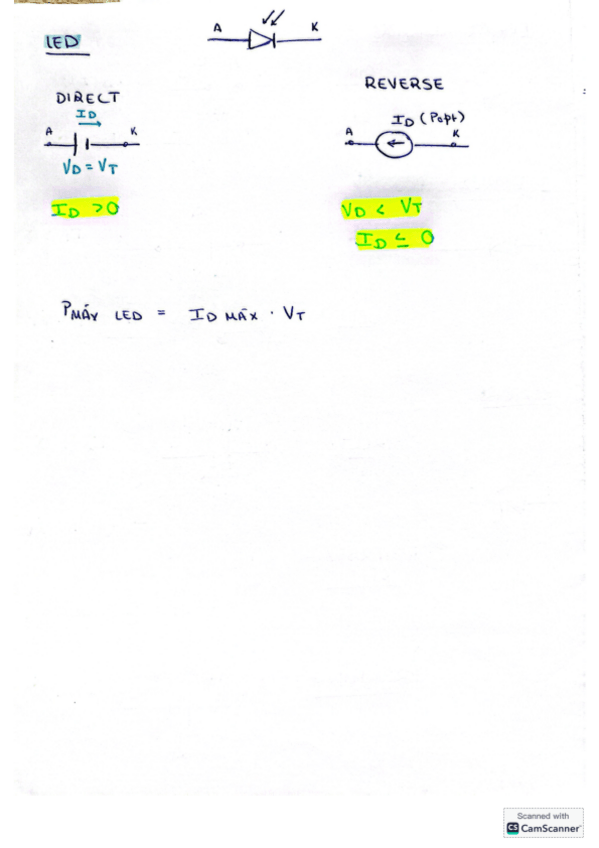 LED
A K
DIRECT
ID
A K
VD = VT
ID > 0
REVERSE
ID (Popt)
A K
VD < VT
ID ≤ 0
PMÁX LED = ID MÁX · VT
Scanned with
CS CamScanner